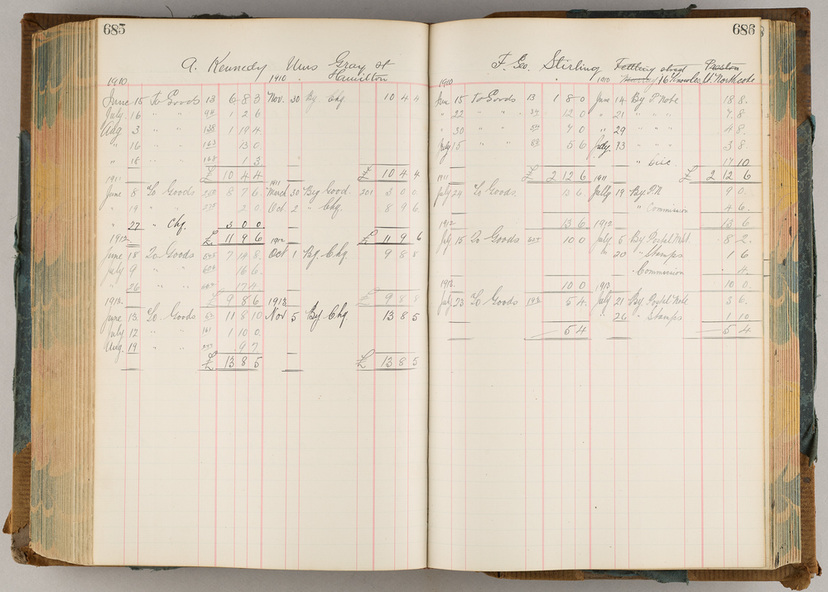 685
A. Kennedy Gray St
Hamilton
1910 1910
June 15 To Goods 13 6 8 3 Nov. 30 By Chq 10 4 4
July 16 " " 1 2 6
Aug 3 " " 1 19 4
" 16 " " 13 0
" 18 " " 1 3
£ 10 4 4 £ 10 4 4
1911 1911
June 8 To Goods 8 7 6 March 30 By Good 3 0 0
" 19 " Oct 2 " Chq. 8 9 6
" 27 " Chq. 3 0 0
£ 11 9 6 £ 11 9 6
1912 1912
June 15 To Goods 7 14 8 Oct 1 By Chq 9 8 8
July 9 " " 16 6
26 " " 17 4
1913 £ 9 8 6 1913 £ 9 8 8
June 13 To Goods 11 8 10 Nov 5 By Chq 13 8 5
July 12 " " 1 10 0
Aug. 19 " " 9 7
£ 13 8 5 £ 13 8 5
686
F. Geo. Stirling street Preston
Northcote
June 15 To Goods 13 1 8 0 June 14 By P Note 18 8
" 22 " " 12 0 " 21 " " " 7 8
" 30 " " 7 0 " 29 " " " 4 8
July 5 " " 5 6 July " " " 3 8
17 10
1911 2 12 6 1911 2 12 6
July To Goods 13 6 July 19 By P.N. 9 0
" Commission 4 6
1912 13 6 1912 13 6
July 15 To Goods 10 0 July 5 By Postal Note 8 2
" 20 " Stamps 1 6
Commission 4
1913 10 0 1913 10 0
July 23 To Goods 5 4 July 21 By Postal Note 3 6
26 " Stamps 1 10
5 4 5 4